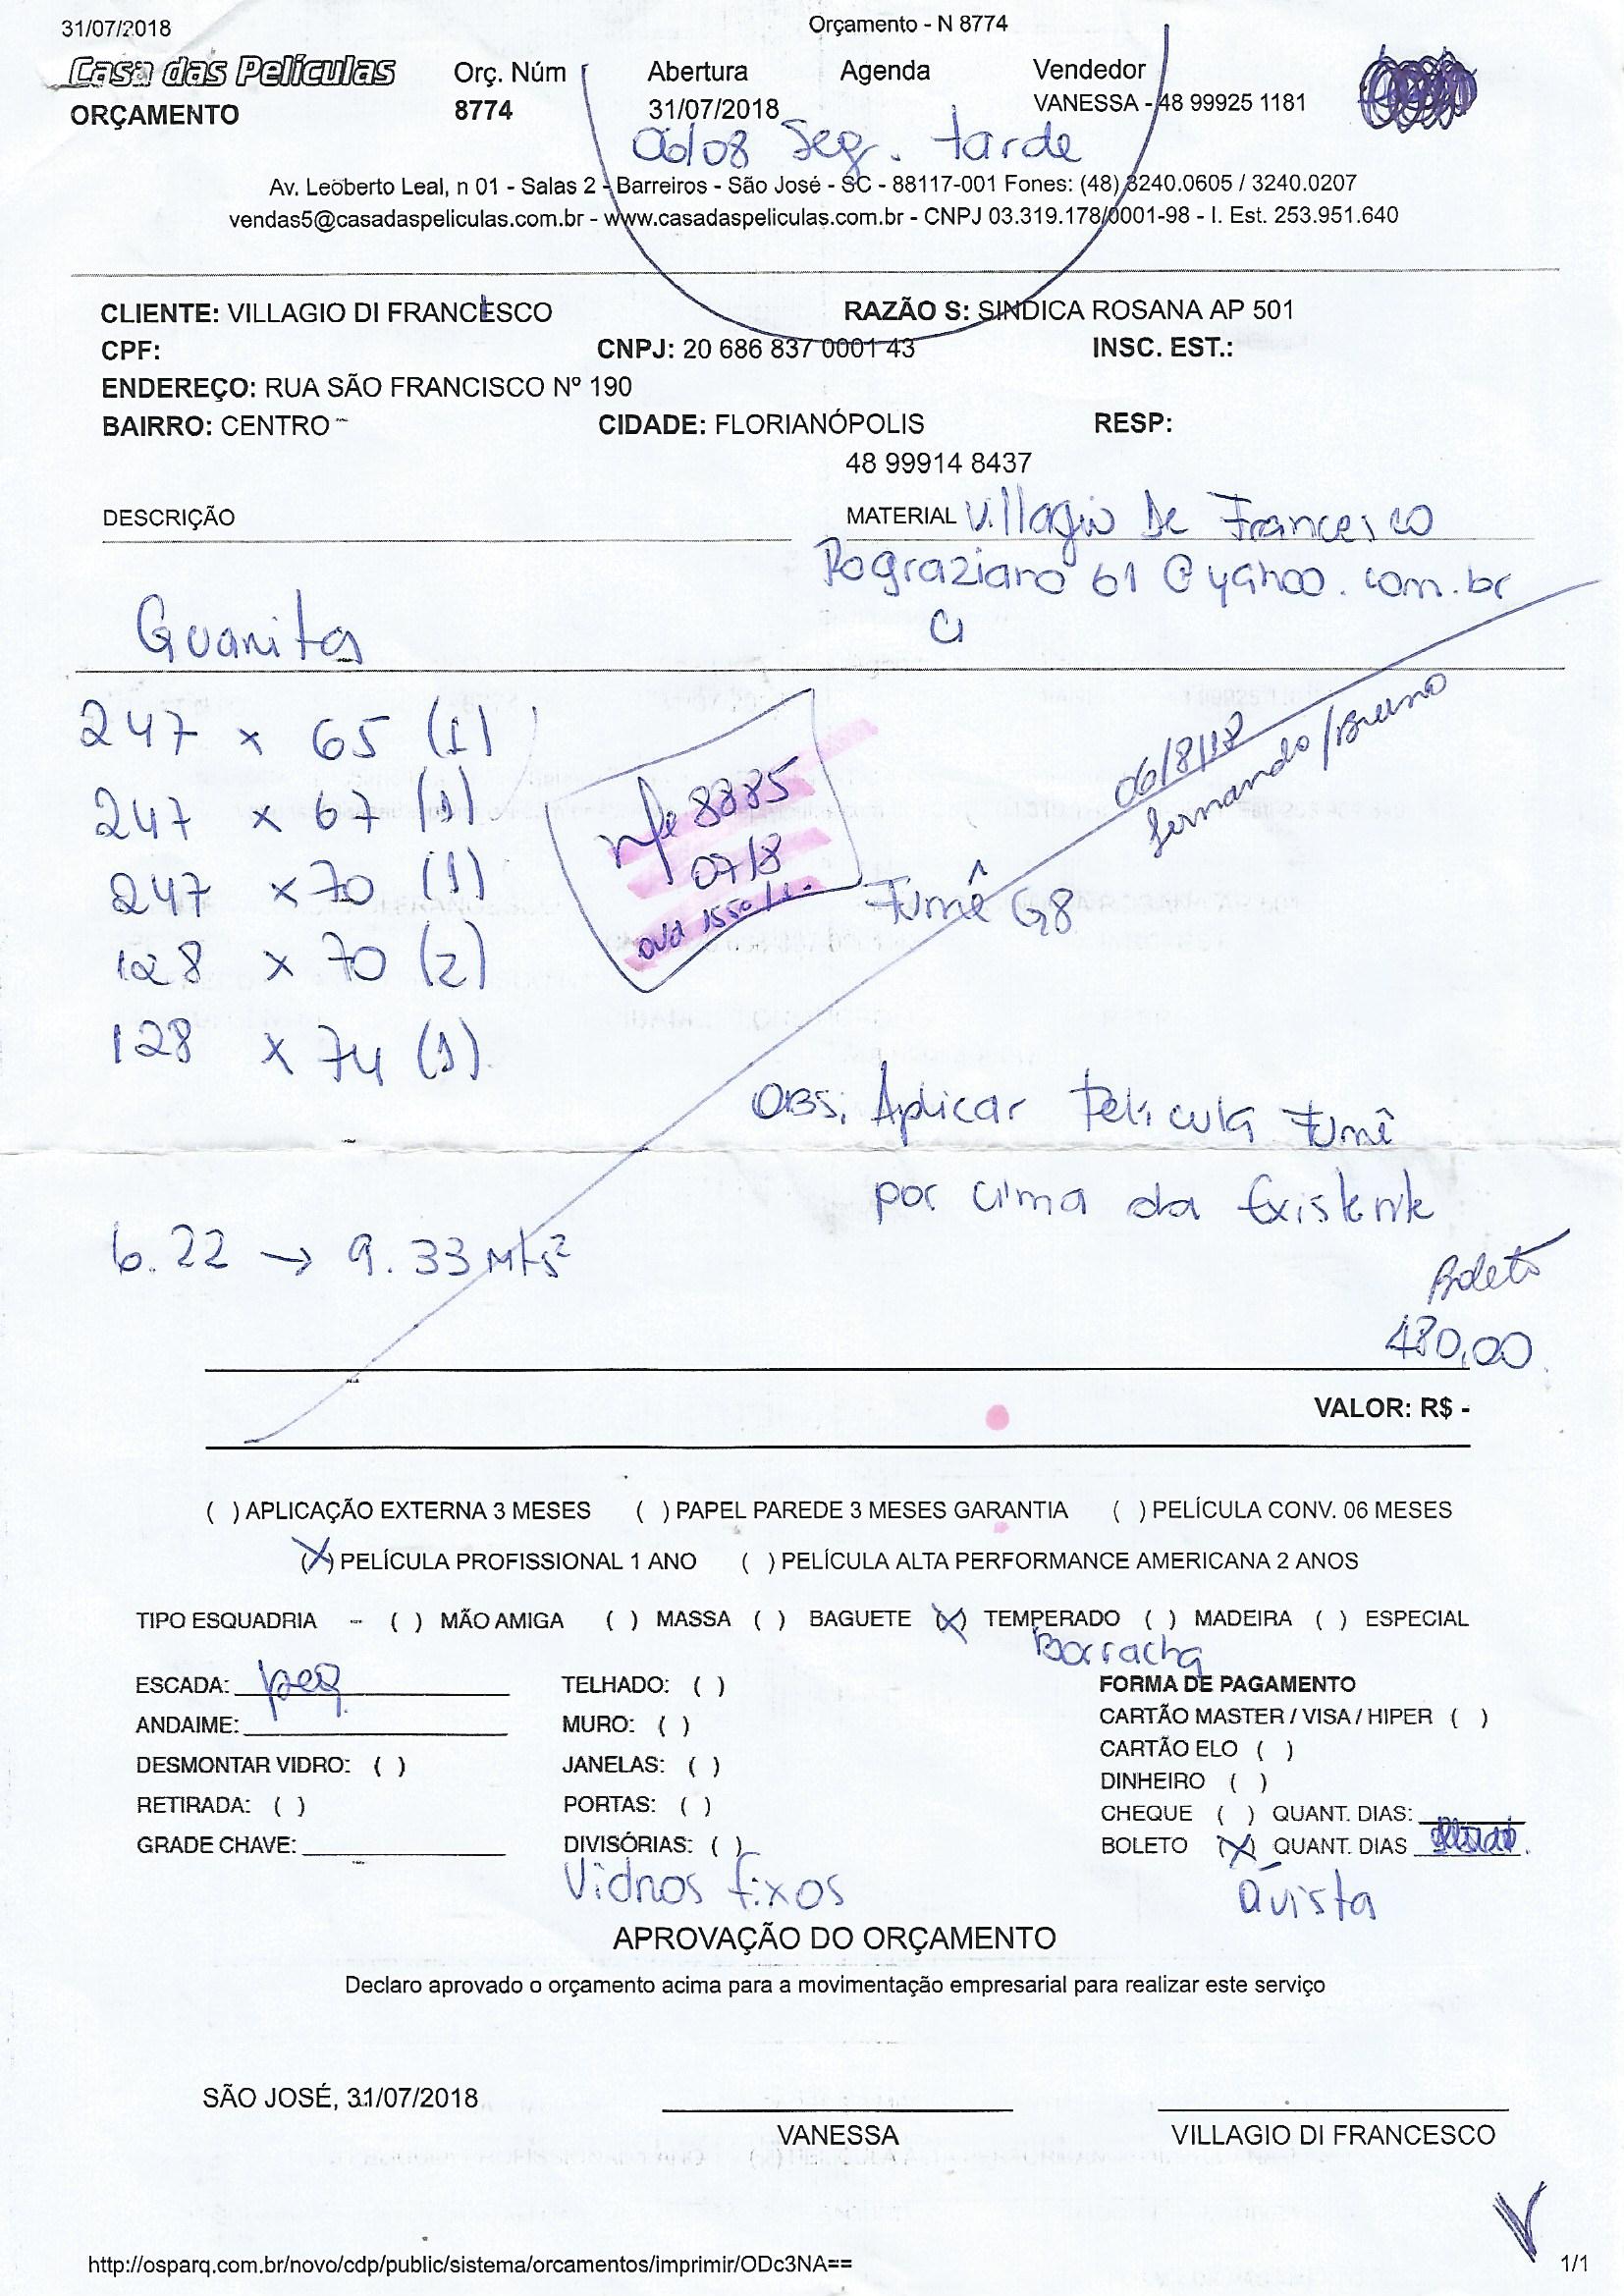 31/07/2018
Orçamento - N 8774
Casa das Películas
Orç. Núm
Abertura
Agenda
Vendedor
ORÇAMENTO
8774
31/07/2018
VANESSA - 48 99925 1181
06/08 Seg. tarde
Av. Leoberto Leal, n 01 - Salas 2 - Barreiros - São José - SC - 88117-001 Fones: (48) 3240.0605 / 3240.0207
vendas5@casadaspeliculas.com.br - www.casadaspeliculas.com.br - CNPJ 03.319.178/0001-98 - I. Est. 253.951.640
CLIENTE: VILLAGIO DI FRANCESCO
RAZÃO S: SINDICA ROSANA AP 501
CPF:
CNPJ: 20 686 837 0001 43
INSC. EST.:
ENDEREÇO: RUA SÃO FRANCISCO Nº 190
BAIRRO: CENTRO
CIDADE: FLORIANÓPOLIS
RESP:
48 99914 8437
DESCRIÇÃO
MATERIAL Villagio De Francesco
Rograziano 61 @ yahoo.com.br
Guarita
247 x 65 (1)
247 x 67 (1)
247 x 70 (1)
128 x 70 (2)
128 x 74 (1)
nfe 8885
07/8
06/8/18
Fernando/Bruno
Fumê G8
OBS: Aplicar Película Fumê
por cima da Existente
6.22 → 9.33 Mts²
Boleto
480,00
VALOR: R$ -
( ) APLICAÇÃO EXTERNA 3 MESES ( ) PAPEL PAREDE 3 MESES GARANTIA ( ) PELÍCULA CONV. 06 MESES
(X) PELÍCULA PROFISSIONAL 1 ANO ( ) PELÍCULA ALTA PERFORMANCE AMERICANA 2 ANOS
TIPO ESQUADRIA - ( ) MÃO AMIGA ( ) MASSA ( ) BAGUETE (X) TEMPERADO ( ) MADEIRA ( ) ESPECIAL
Borracha
ESCADA: peq
TELHADO: ( )
FORMA DE PAGAMENTO
ANDAIME:
MURO: ( )
CARTÃO MASTER / VISA / HIPER ( )
DESMONTAR VIDRO: ( )
JANELAS: ( )
CARTÃO ELO ( )
DINHEIRO ( )
RETIRADA: ( )
PORTAS: ( )
CHEQUE ( ) QUANT. DIAS:
GRADE CHAVE:
DIVISÓRIAS: ( )
BOLETO (X) QUANT. DIAS
Vidros fixos
ávista
APROVAÇÃO DO ORÇAMENTO
Declaro aprovado o orçamento acima para a movimentação empresarial para realizar este serviço
SÃO JOSÉ, 31/07/2018
VANESSA
VILLAGIO DI FRANCESCO
http://osparq.com.br/novo/cdp/public/sistema/orcamentos/imprimir/ODc3NA==
1/1